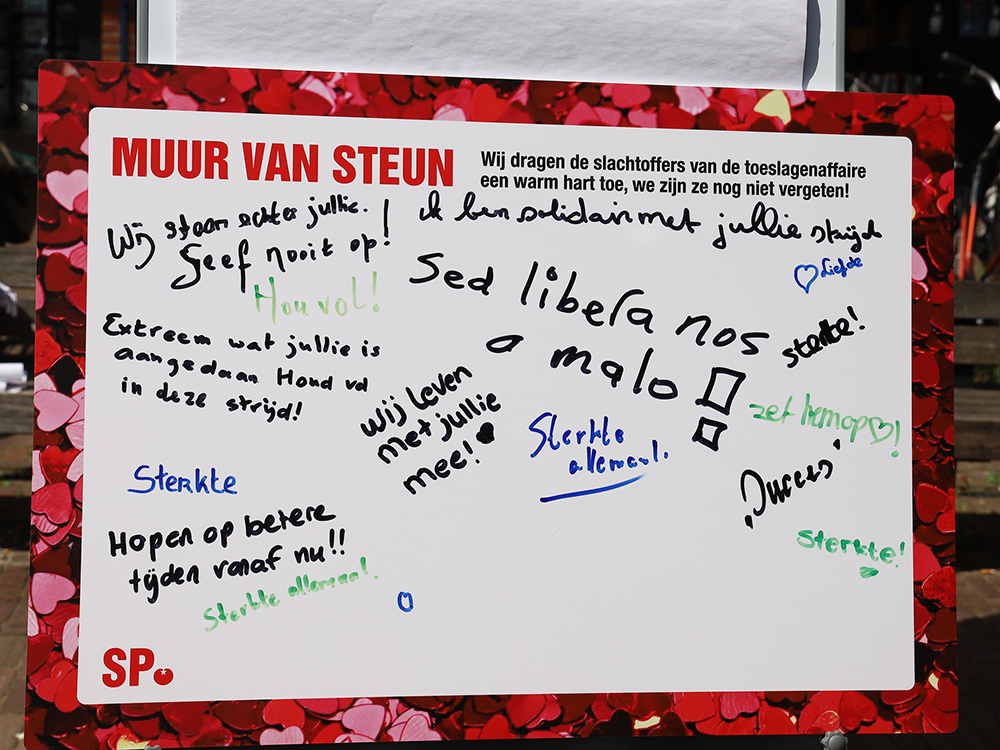 MUUR VAN STEUN
Wij dragen de slachtoffers van de toeslagenaffaire
een warm hart toe, we zijn ze nog niet vergeten!
Wij staan achter jullie.
Geef nooit op!
Hou vol!
ik ben solidair met jullie strijd
Liefde
Sed libera nos
a malo
sterkte!
Extreem wat jullie is
aangedaan Houd vol
in deze strijd!
Wij leven
met jullie
mee!
Sterkte
allemaal.
zet hem op!
„Succes"
Sterkte
Hopen op betere
tijden vanaf nu!!
Sterkte allemaal!
Sterkte!
SP